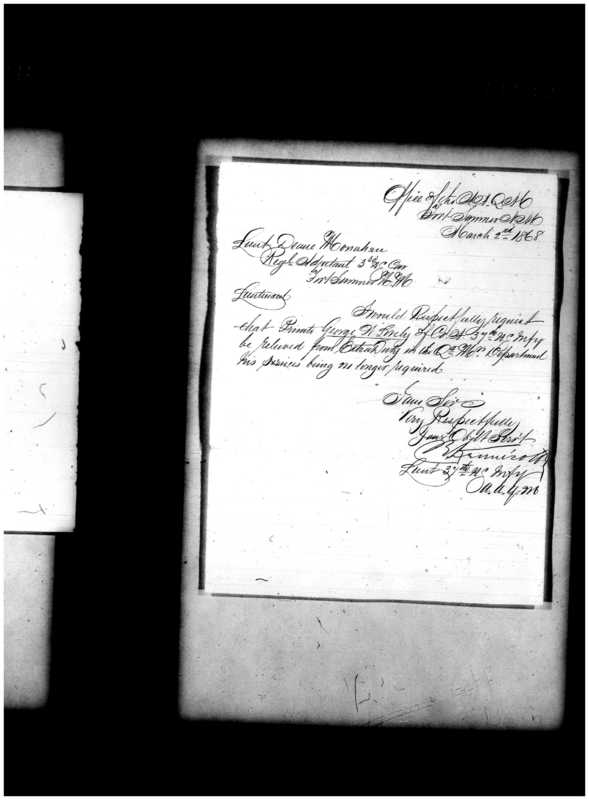 Office of the A.A.Q.M
Fort Sumner N.M
March 2nd 1868
Lieut Deane Monahan
Regl Adjutant 3rd US Cav
Fort Sumner N.M
Lieutenant
I would Respectfully request
that Private George W. of Co. 37th US Infy
be relieved from Extra Duty in the Qr. Mrs Department
his services being no longer required
I am Sir
Very Respectfully
Your Obt Servt
Lieut 37th US Infy
A.A.Q.M